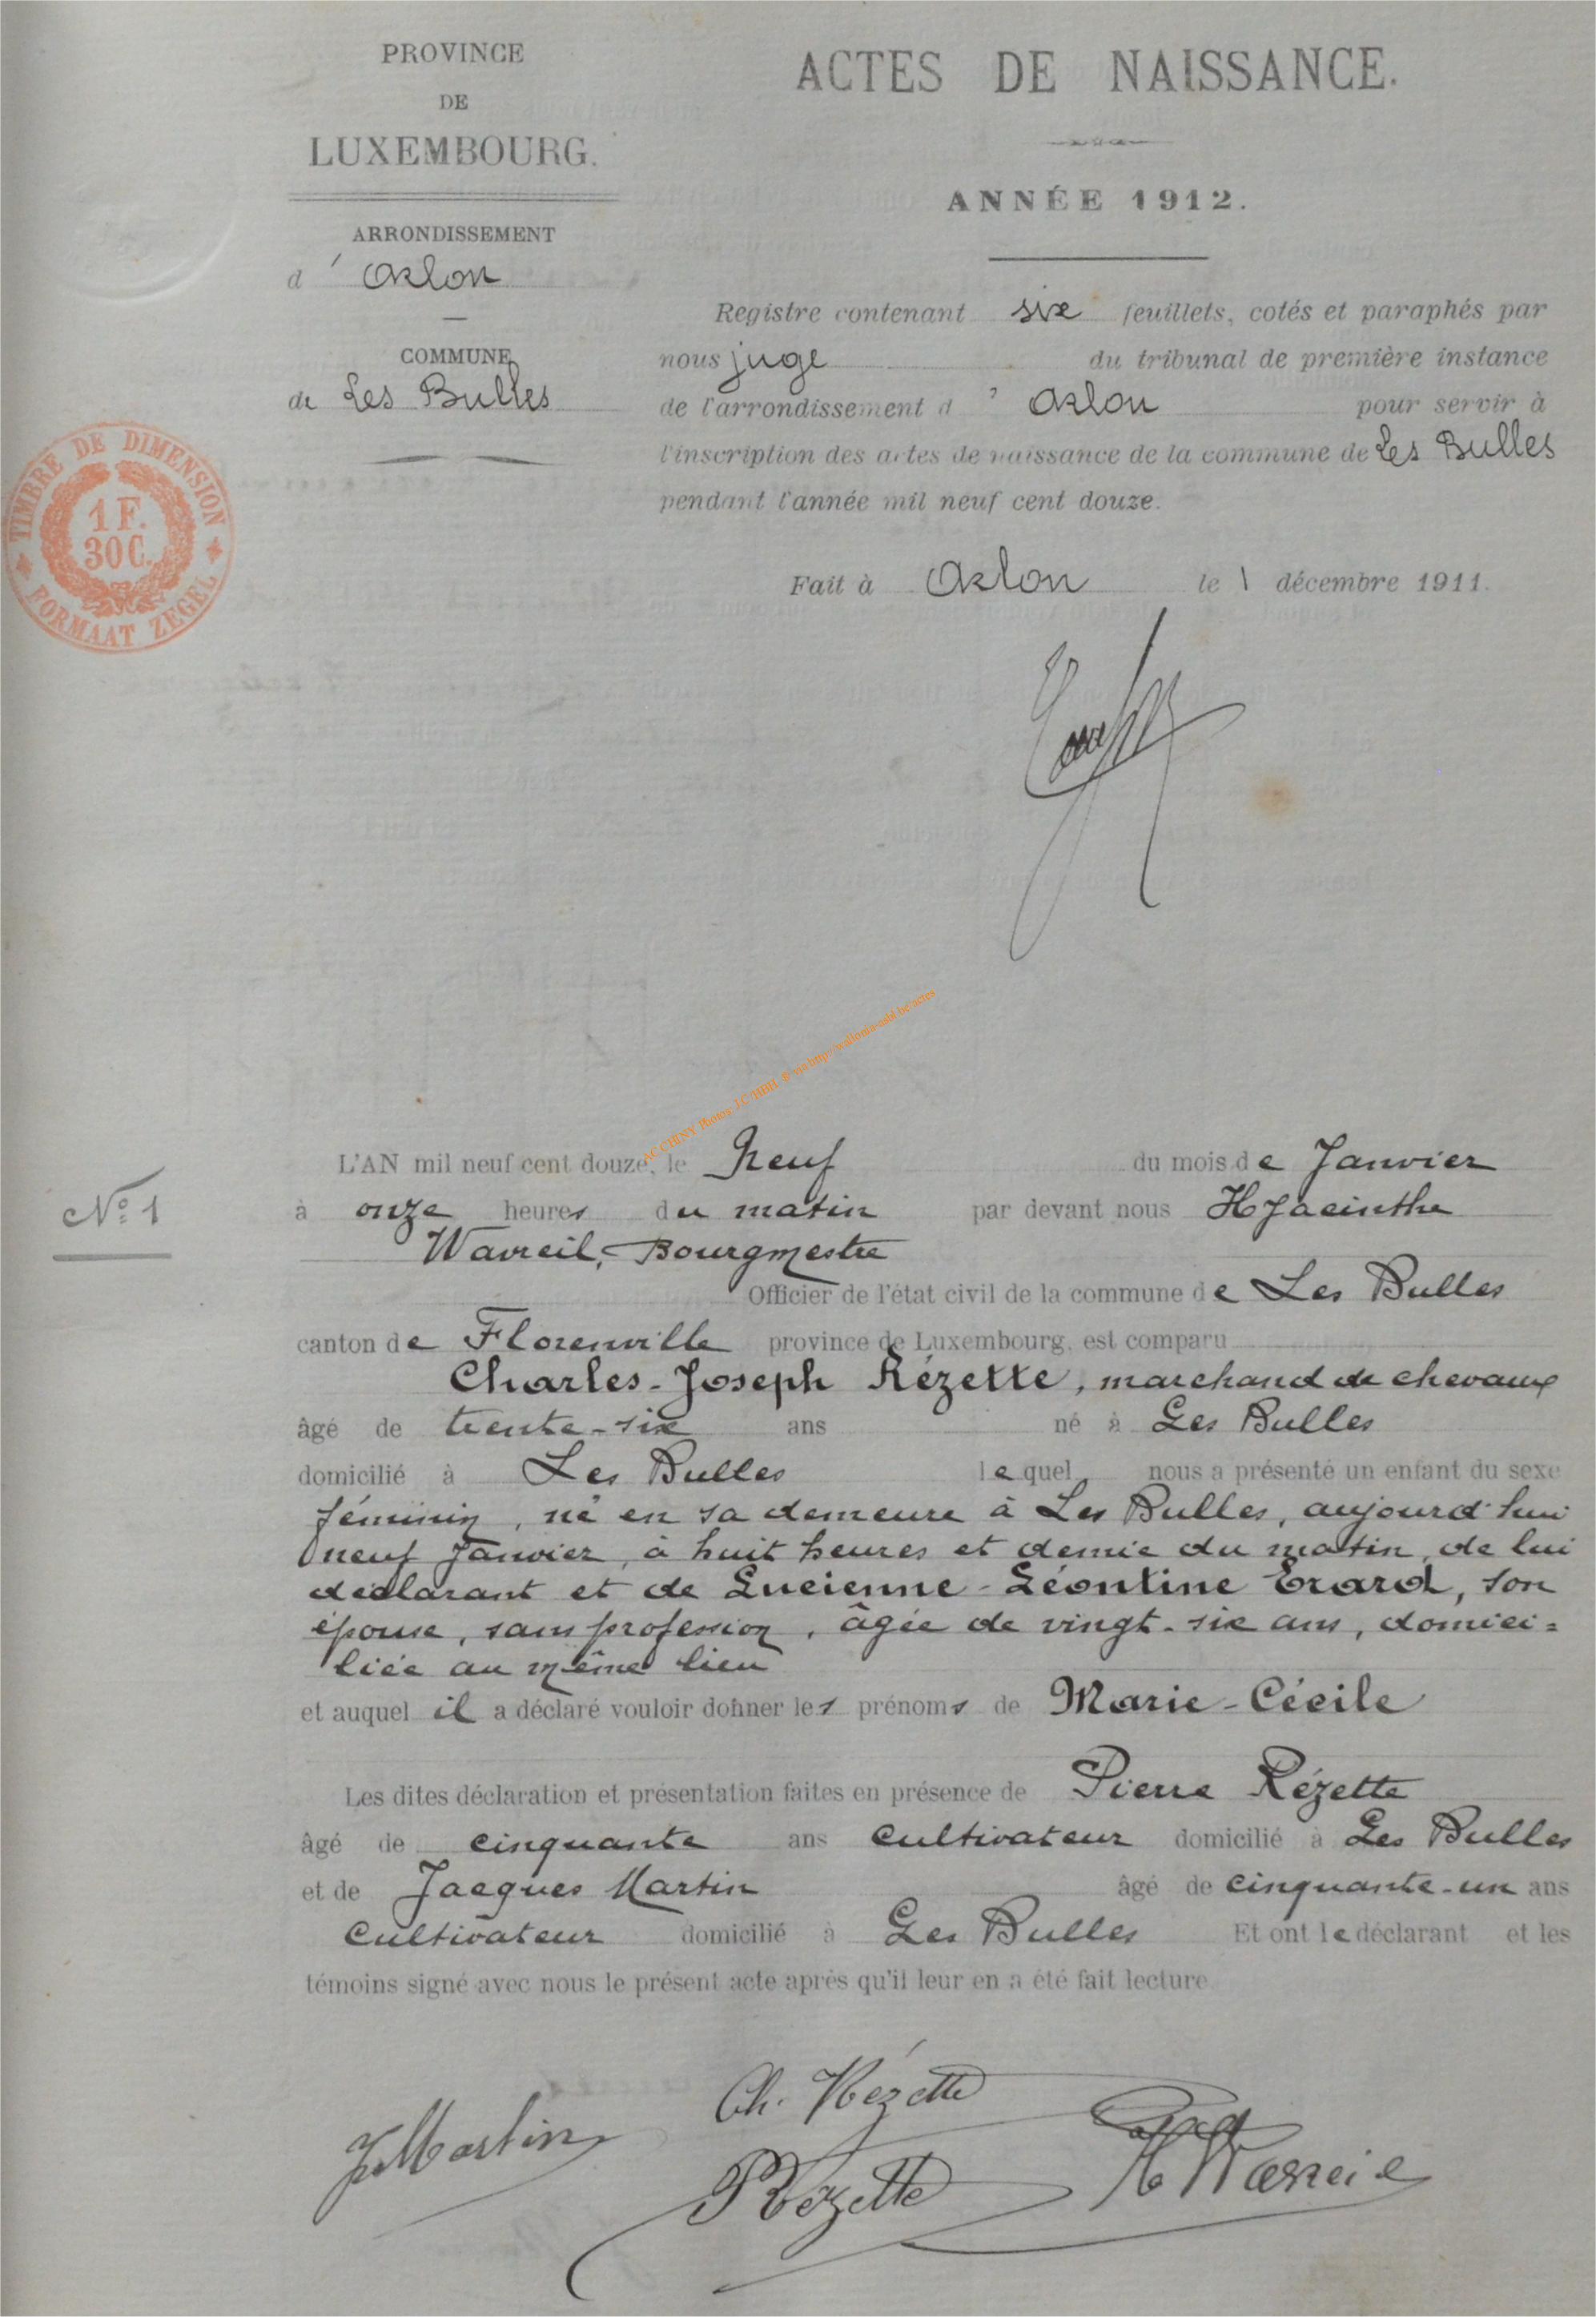 PROVINCE
DE
LUXEMBOURG.
ARRONDISSEMENT
d'Arlon
COMMUNE
de Les Bulles
TIMBRE DE DIMENSION
1 F.
30 C.
FORMAAT ZEGEL
ACTES DE NAISSANCE.
ANNÉE 1912.
Registre contenant six feuillets, cotés et paraphés par
nous juge du tribunal de première instance
de l'arrondissement d'Arlon pour servir à
l'inscription des actes de naissance de la commune de Les Bulles
pendant l'année mil neuf cent douze.
Fait à Arlon le 1 décembre 1911.
AC CHINY Photos J.C.
N° 1
L'AN mil neuf cent douze, le Neuf du mois de Janvier
à onze heures du matin par devant nous Hyacinthe
Wavreil, Bourgmestre
Officier de l'état civil de la commune de Les Bulles
canton de Florenville province de Luxembourg, est comparu
Charles-Joseph Rézette, marchand de chevaux
âgé de trente-six ans né à Les Bulles
domicilié à Les Bulles lequel nous a présenté un enfant du sexe
féminin, né en sa demeure à Les Bulles, aujourd'hui
neuf Janvier, à huit heures et demie du matin, de lui
déclarant et de Lucienne-Léontine Erard, son
épouse, sans profession, âgée de vingt-six ans, domici=
liée au même lieu
et auquel il a déclaré vouloir donner les prénoms de Marie-Cécile
Les dites déclaration et présentation faites en présence de Pierre Rézette
âgé de cinquante ans cultivateur domicilié à Les Bulles
et de Jacques Martin âgé de cinquante-un ans
cultivateur domicilié à Les Bulles Et ont le déclarant et les
témoins signé avec nous le présent acte après qu'il leur en a été fait lecture.
Ch. Rézette
J Martin
P Rézette
H Wavreil